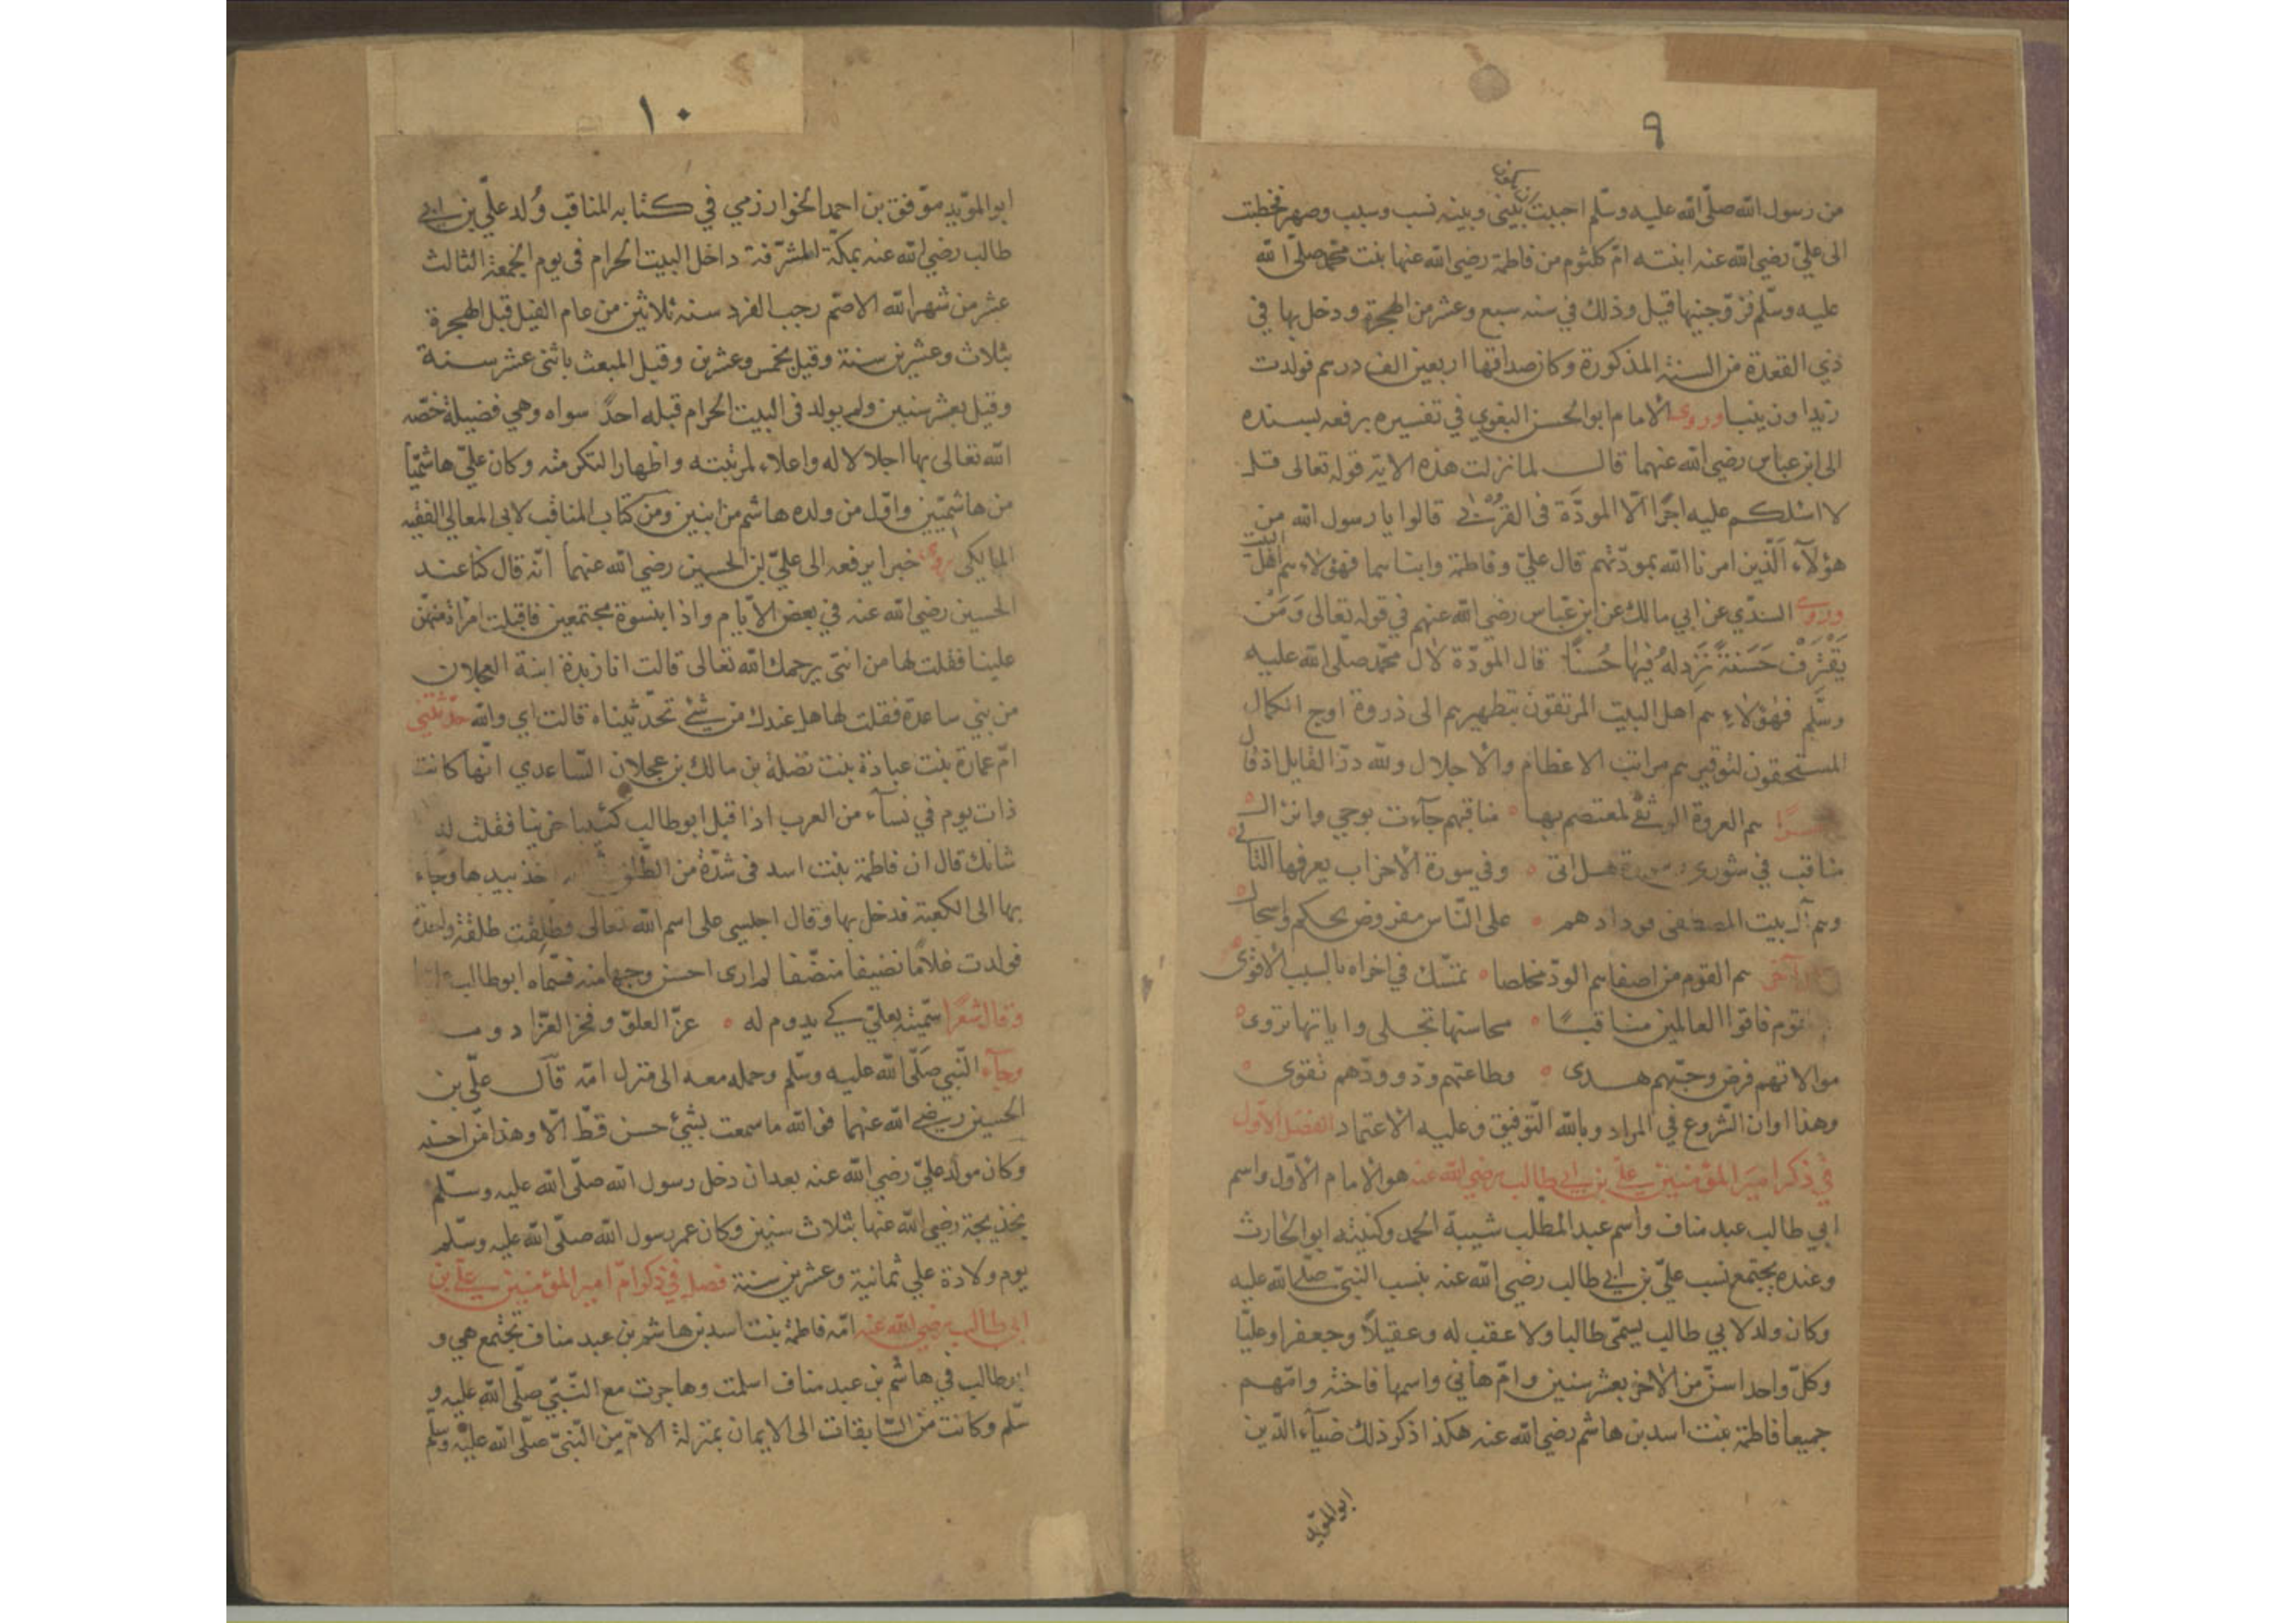 ٩
يكون
من رسول الله صلّى الله عليه وسلّم احببت ان بيني وبينه نسب وسبب وصهر فخطبت
الى عليّ رضي الله عنه ابنته امّ كلثوم من فاطمة رضي الله عنها بنت محمّد صلّى الله
عليه وسلّم فزوّجنيها قيل وذلك في سنه سبع وعشر من الهجرة ودخل بها في
ذي القعدة من السنة المذكورة وكان صداقها اربعين الف درهم فولدت
زيدا وزينبا وروى الامام ابو الحسن البغوي في تفسيره يرفعه بسنده
الى ابن عباس رضي الله عنهما قال لما نزلت هذه الاية قوله تعالى قل
لا اسئلكم عليه اجرًا الّا المودّة فى القربى قالوا يا رسول الله من
هؤلآء الّذين امرنا الله بمودّتهم قال عليّ وفاطمة وابناهما فهؤلاء هم اهل البيت
وروى السدّي عن ابي مالك عن ابن عبّاس رضي الله عنهم في قوله تعالى وَمَنْ
يَقْتَرِفْ حَسَنَةً نَزِدْ لهُ فيْهَا حُسنًا قال المودّة لال محمّد صلّى الله عليه
وسلّم فهؤلاء هم اهل البيت المرتقون بتطهيرهم الى ذروة اوج الكمال
المستحقون لتوقيرهم مراتب الاعظام والاجلال ولله درّ القايل اذ قال
هم العروة الوثقى لمعتصم بها ۰ مناقبهم جآءت بوحي وانزال
مناقب في شورى وسورة هل اتى ۰ وفي سورة الاحزاب يعرفها التالي
وهم آل بيت المصطفى فودادهم ۰ على النّاس مفروض بحكم واسجال
آخر هم القوم من اصفاهم الودّ مخلصا ۰ تمسّك في اخراه بالسبب الاقوى
هم القوم فاقوا العالمين مناقبًا ۰ محاسنها تجلى واياتها تروى
موالاتهم فرض وحبّهم هدى ۰ وطاعتهم ودّ وودّهم تقوى
وهذا اوان الشّروع في المراد وبالله التّوفيق وعليه الاعتماد الفصل الاوّل
في ذكر امير المؤمنين علي بن ابي طالب رضي الله عنه هو الامام الاوّل واسم
ابي طالب عبد مناف واسم عبد المطّلب شيبة الحمد وكنيته ابو الحارث
وعنده يجتمع نسب عليّ بن ابي طالب رضي الله عنه بنسب النبيّ صلّى الله عليه
وكان ولد لابي طالب يسمّى طالبا ولا عقب له وعقيلاً وجعفرا وعليّا
وكلّ واحد اسنّ من الاخر بعشر سنين وامّ هاني واسمها فاخته وامّهم
جميعا فاطمة بنت اسد بن هاشم رضي الله عنه هكذا ذكر ذلك ضيآء الدّين
ابو المؤيد
١٠
ابو المؤيد موفق بن احمد الخوارزمي في كتابه المناقب وُلد عليّ بن ابي
طالب رضي الله عنه بمكّة المشرّفة داخل البيت الحرام فى يوم الجمعة الثالث
عشر من شهر الله الاصمّ رجب الفرد سنة ثلاثين من عام الفيل قبل الهجرة
بثلاث وعشرين سنة وقيل بخمس وعشرين وقبل المبعث باثنى عشر سنة
وقيل بعشر سنين ولم يولد فى البيت الحرام قبله احدٌ سواه وهي فضيلة خصّه
الله تعالى بها اجلالا له واعلاء لمرتبته واظهارا لتكرمته وكان عليّ هاشميّا
من هاشميّين واوّل من ولده هاشم مرّتين ومن كتاب المناقب لابى المعالي الفقيه
المالكى روى خبرا يرفعه الى عليّ ابن الحسين رضي الله عنهما انّه قال كنا عند
الحسين رضي الله عنه في بعض الايّام واذا بنسوة مجتمعين فاقبلت امراة منهنّ
علينا فقلت لها من انتي يرحمك الله تعالى قالت انا زيدة ابنة العجلان
من بني ساعدة فقلت لها هل عندك من شئ تحدّثيناه قالت اي والله حدّثتني
امّ عمارة بنت عبادة بنت نضلة بن مالك بن عجلان السّاعدي انّها كانت
ذات يوم في نسآء من العرب اذ اقبل ابو طالب كئيبا حزينا فقلت له
شانك قال ان فاطمة بنت اسد فى شدّة من الطّلق اخذ بيدها وجاء
بها الى الكعبة فدخل بها وقال اجلسي على اسم الله تعالى فطلقت طلقة واحدة
فولدت غلامًا نضيفا منضّفا لم ارى احسن وجها منه فسمّاه ابو طالب
وقال شعرًا سمّيته بعليّ كي يدوم له ۰ عزّ العلوّ وفخر العزّ ادوم
وجآء النّبي صلّى الله عليه وسلّم وحمله معه الى منزل امّه قال عليّ بن
الحسين رضي الله عنهما فوالله ما سمعت بشئ حسن قطّ الّا وهذا من احسنه
وكان مولد عليّ رضي الله عنه بعد ان دخل رسول الله صلّى الله عليه وسلّم
بخديجة رضي الله عنها بثلاث سنين وكان عمر رسول الله صلّى الله عليه وسلّم
يوم ولادة علي ثمانية وعشرين سنة فصل في ذكر امّ امير المؤمنين علي بن
ابى طالب رضي الله عنه امّه فاطمة بنت اسد بن هاشم بن عبد مناف تجتمع هي و
ابو طالب في هاشم بن عبد مناف اسلمت وهاجرت مع النّبيّ صلّى الله عليه و
سلّم وكانت من السّابقات الى الايمان بمنزلة الامّ من النّبيّ صلّى الله عليه وسلّم